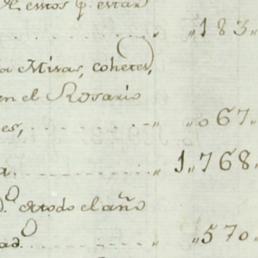 estos q. estan
„ „183„
a Misas, cohetes,
en el Rosario
es, „ „067„
a. 1„768„
d.o en todo el año
ad.o „ „570„